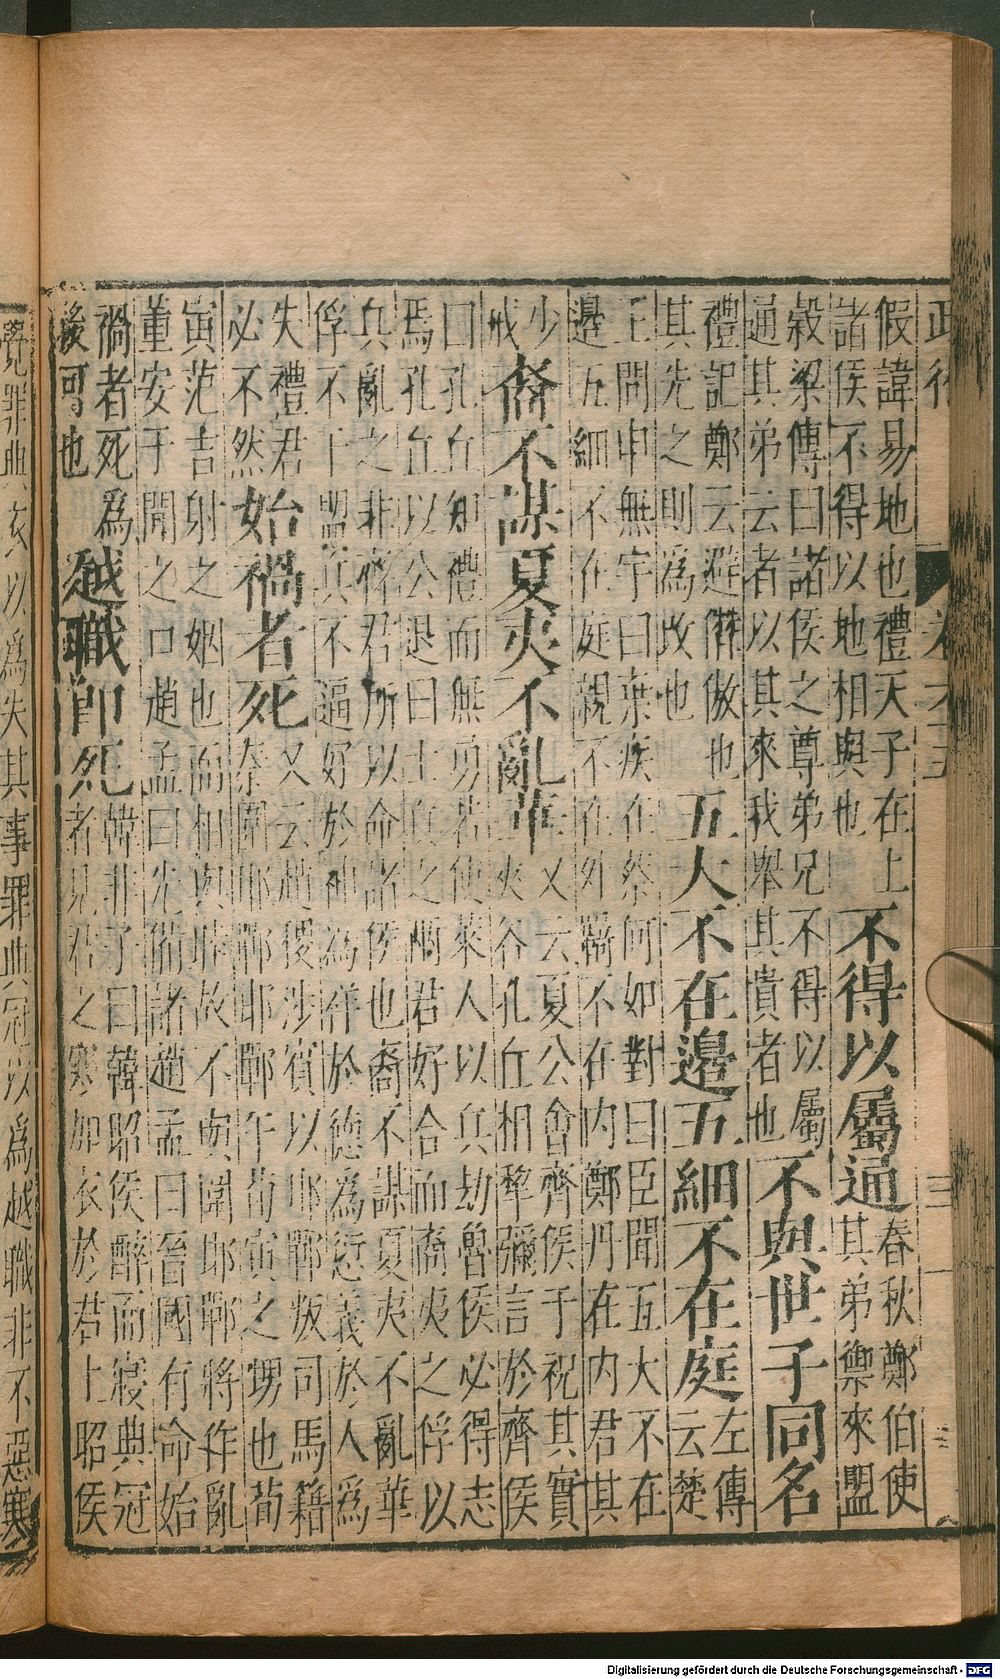 假諱易地也禮天子在上
諸侯不得以地相與也
不得以屬通
春秋鄭伯使
其弟禦來盟
穀梁傳曰諾侯之尊弟兄不得以屬
通其弟云者以其來我舉其貴者也
不與世子同名
禮記鄭云避僣傚也
其先之則為改也
五大不在邊五細不在庭
左傳
云楚
王問申無宇曰棄疾在蔡何如對曰臣聞五大不在
邊五細不在庭親不在外羇不在內鄭丹在內君其
少
戒
裔不謀夏夷不亂華
又云夏公會齊侯于祝其實
夾谷孔丘相犂彌言於齊侯
曰孔丘知禮而無勇若使萊人以兵劫魯侯必得志
焉孔丘以公退曰士兵之兩君好合而裔夷之俘以
兵亂之非齊君所以命諸侯也裔不謀夏夷不亂華
俘不干盟兵不逼好於神為祥於德為愆義於人為
失禮君
必不然
始禍者死
又云趙稷涉賓以邯鄲叛司馬籍
秦圍邯鄲邯鄲午荀寅之甥也荀
寅范吉射之姻也而相與睦故不與圍邯鄲將作亂
董安于聞之口趙孟曰先備諸趙孟曰晉國有命始
禍者死為
後可也
越職即死
韓非子曰韓昭侯醉而寢典冠
者見君之寒加衣於君上昭侯
覺罪典衣以為失其事罪典冠以為越職非不惡寒
Digitalisierung gefördert durch die Deutsche Forschungsgemeinschaft - DFG